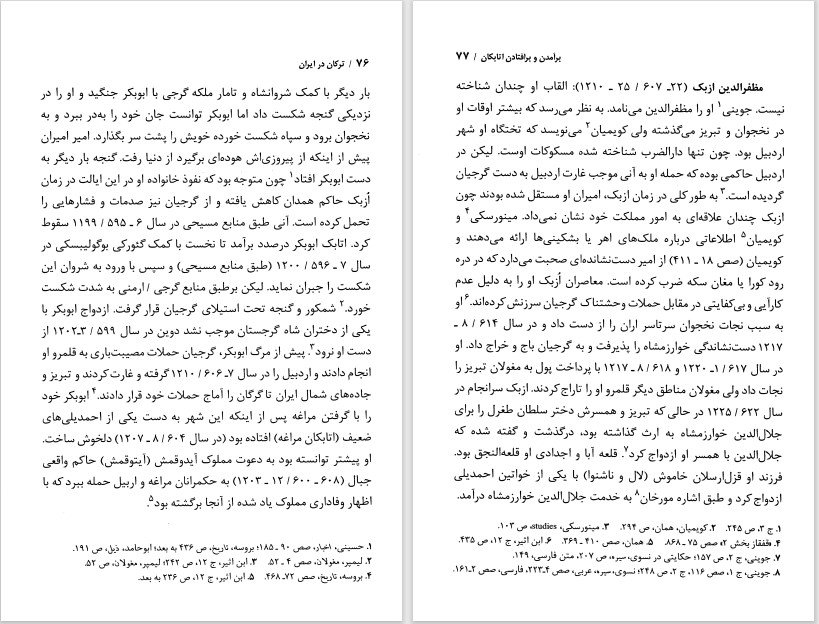 ۷۶ / ترکان در ایران
بار دیگر با کمک شروانشاه و تامار ملکه گرجی با ابوبکر جنگید و او را در
نزدیکی گنجه شکست داد اما ابوبکر توانست جان خود را به‌در ببرد و به
نخجوان برود و سپاه شکست خورده خویش را پشت سر بگذارد. امیر امیران
پیش از اینکه از پیروزی‌اش هوده‌ای برگیرد از دنیا رفت. گنجه بار دیگر به
دست ابوبکر افتاد۱ چون متوجه بود که نفوذ خانواده او در این ایالت در زمان
اُزبک حاکم همدان کاهش یافته و از گرجیان نیز صدمات و فشارهایی را
تحمل کرده است. آنی طبق منابع مسیحی در سال ۶ ـ ۵۹۵ / ۱۱۹۹ سقوط
کرد. اتابک ابوبکر درصدد برآمد تا نخست با کمک گئورکی بوگولیبسکی در
سال ۷ ـ ۵۹۶ / ۱۲۰۰ (طبق منابع مسیحی) و سپس با ورود به شروان این
شکست را جبران نماید. لیکن برطبق منابع گرجی / ارمنی به شدت شکست
خورد.۲ شمکور و گنجه تحت استیلای گرجیان قرار گرفت. ازدواج ابوبکر با
یکی از دختران شاه گرجستان موجب نشد دوین در سال ۵۹۹ / ۳ـ۱۲۰۲ از
دست او نرود.۳ پیش از مرگ ابوبکر، گرجیان حملات مصیبت‌باری به قلمرو او
انجام دادند و اردبیل را در سال ۷ـ ۶۰۶ / ۱۲۱۰ گرفته و غارت کردند و تبریز و
جاده‌های شمال ایران تا گرگان را آماج حملات خود قرار دادند.۴ ابوبکر خود
را با گرفتن مراغه پس از اینکه این شهر به دست یکی از احمدیلی‌های
ضعیف (اتابکان مراغه) افتاده بود (در سال ۶۰۴ / ۸ ـ ۱۲۰۷) دلخوش ساخت.
او پیشتر توانسته بود به دعوت مملوک آیدوقمش (آیتوقمش) حاکم واقعی
جبال (۶۰۸ ـ ۶۰۰ / ۱۲ ـ ۱۲۰۳) به حکمرانان مراغه و اربیل حمله ببرد که با
اظهار وفاداری مملوک یاد شده از آنجا برگشته بود.۵
۱. حسینی، اخبار، صص ۹۰ ـ ۱۸۵؛ بروسه، تاریخ، ص ۴۳۶ به بعد؛ ابوحامد، ذیل، ص ۱۹۱.
۲. لیمپر، مغولان، صص ۴ ـ ۵۲. ۳. ابن اثیر، ج ۱۲، ص ۲۴۲؛ لیمپر، مغولان، ص ۵۲.
۴. بروسه، تاریخ، صص ۷۲ـ۴۶۸. ۵. ابن اثیر، ج ۱۲، ص ۲۳۶ به بعد.
برآمدن و برافتادن اتابکان / ۷۷
مظفرالدین ازبک (۲۲ـ ۶۰۷ / ۲۵ ـ ۱۲۱۰): القاب او چندان شناخته
نیست. جوینی۱ او را مظفرالدین می‌نامد. به نظر می‌رسد که بیشتر اوقات او
در نخجوان و تبریز می‌گذشته ولی کویمیان۲ می‌نویسد که تختگاه او شهر
اردبیل بود. چون تنها دارالضرب شناخته شده مسکوکات اوست. لیکن در
اردبیل حاکمی بوده که حمله او به آنی موجب غارت اردبیل به دست گرجیان
گردیده است.۳ به طور کلی در زمان ازبک، امیران او مستقل شده بودند چون
ازبک چندان علاقه‌ای به امور مملکت خود نشان نمی‌داد. مینورسکی۴ و
کویمیان۵ اطلاعاتی درباره ملک‌های اهر یا بشکینی‌ها ارائه می‌دهند و
کویمیان (صص ۱۸ ـ ۴۱۱) از امیر دست‌نشانده‌ای صحبت می‌دارد که در دره
رود کورا یا مغان سکه ضرب کرده است. معاصران اُزبک او را به دلیل عدم
کارآیی و بی‌کفایتی در مقابل حملات وحشتناک گرجیان سرزنش کرده‌اند.۶ او
به سبب نجات نخجوان سرتاسر اران را از دست داد و در سال ۶۱۴ / ۸ ـ
۱۲۱۷ دست‌نشاندگی خوارزمشاه را پذیرفت و به گرجیان باج و خراج داد. او
در سال ۶۱۷ / ۱ـ ۱۲۲۰ و ۶۱۸ / ۸ ـ ۱۲۱۷ با پرداخت پول به مغولان تبریز را
نجات داد ولی مغولان مناطق دیگر قلمرو او را تاراج کردند. ازبک سرانجام در
سال ۶۲۲ / ۱۲۲۵ در حالی که تبریز و همسرش دختر سلطان طغرل را برای
جلال‌الدین خوارزمشاه به ارث گذاشته بود، درگذشت و گفته شده که
جلال‌الدین با همسر او ازدواج کرد.۷ قلعه آبا و اجدادی او قلعه‌النجق بود.
فرزند او قزل‌ارسلان خاموش (لال و ناشنوا) با یکی از خواتین احمدیلی
ازدواج کرد و طبق اشاره مورخان۸ به خدمت جلال‌الدین خوارزمشاه درآمد.
۱. ج ۳، ص ۲۴۵. ۲. کویمیان، همان، ص ۲۹۴. ۳. مینورسکی، studies، ص ۱۰۳.
۴. «قفقاز بخش ۲» صص ۷۵ ـ ۸۶۸. ۵. همان، صص ۴۱۰ ـ ۳۶۹. ۶. ابن اثیر، ج ۱۲، ص ۴۳۵.
۷. جوینی، ج ۲، ص ۱۵۷؛ حکایتی در نسوی، سیره، ص ۲۰۷، متن فارسی، ۱۴۹.
۸. جوینی، ج ۱، صص ۱۱۶، ج ۲، ص ۲۴۸؛ نسوی، سیره، عربی، صص ۴ـ۲۲۳، فارسی، صص ۲ـ۱۶۱.